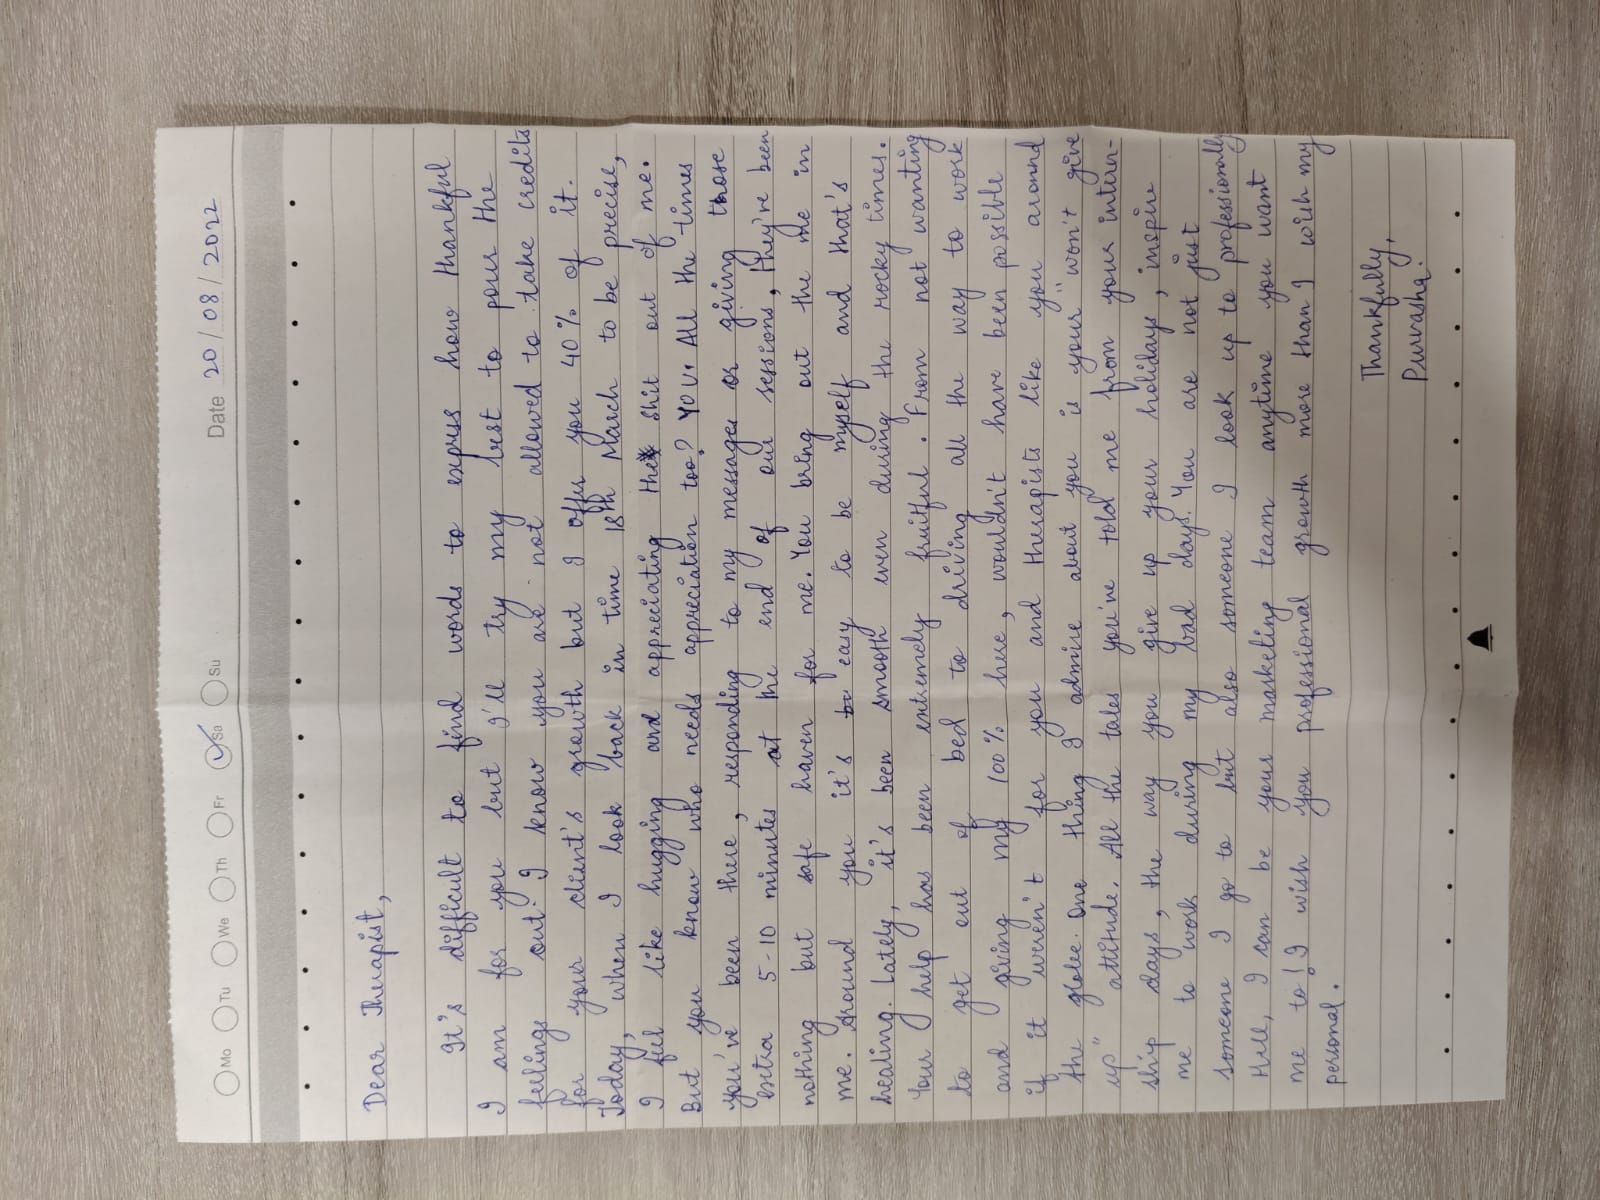 Mo Tu We Th Fr Sa Su
Date 20/08/2022
Dear Therapist,
It's difficult to find words to express how thankful
I am for you but I'll try my best to pour the
feelings out. I know you are not allowed to take credits
for your client's growth but I offer you 40% of it.
Today, when I look back in time 18th March to be precise,
I feel like hugging and appreciating the shit out of me.
But you know who needs appreciation too? YOU. All the times
you've been there, responding to my messages or giving those
extra 5-10 minutes at the end of our sessions, they've been
nothing but safe haven for me. You bring out the me in
me. Around you it's be easy to be myself and that's
healing. Lately, it's been smooth even during the rocky times.
Your help has been extremely fruitful. From not wanting
to get out of bed to driving all the way to work
and giving my 100% here, wouldn't have been possible
if it weren't for you and therapists like you around
the globe. One thing I admire about you is your "won't give
up" attitude. All the tales you've told me from your intern-
ship days, the way you give up your holidays, inspire
me to work during my bad days. You are not just
someone I go to but also someone I look up to professionally
Hell, I can be your marketing team anytime you want
me to! I wish you professional growth more than I wish my
personal.
Thankfully,
Purvasha.